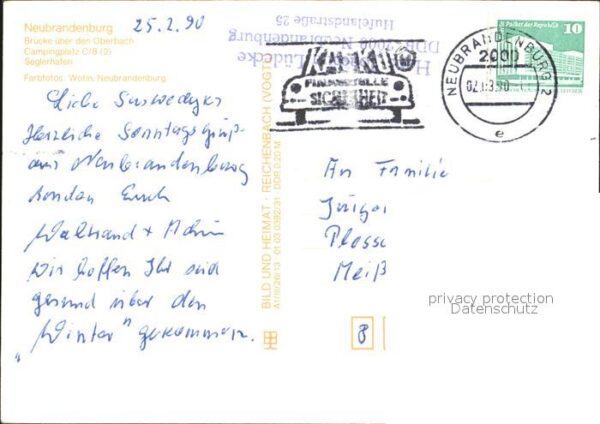 Neubrandenburg
Brücke über den Oberbach
Campingplatz C/8 (2)
Seglerhafen
Farbfotos: Wotin, Neubrandenburg
25.2.90
Liebe
Herzliche Sonntagsgrüße
aus Neubrandenburg
senden Euch
Waltraud +
Wir hoffen Ihr seid
gesund über den
„Winter" gekommen.
BILD UND HEIMAT · REICHENBACH (VOGT
A1/III/26/13 01 03 0392/31 DDR 0,20 M
Lüdecke
Hufelandstraße 25
DDR 2000 Neubrandenburg
KASKO
FINANZIELLE
SICHERHEIT
NEUBRANDENBURG 2
2000
02.03.90
e
Palast der Republik
10
An Familie
Jürgen
Meiß
8
privacy protection
Datenschutz